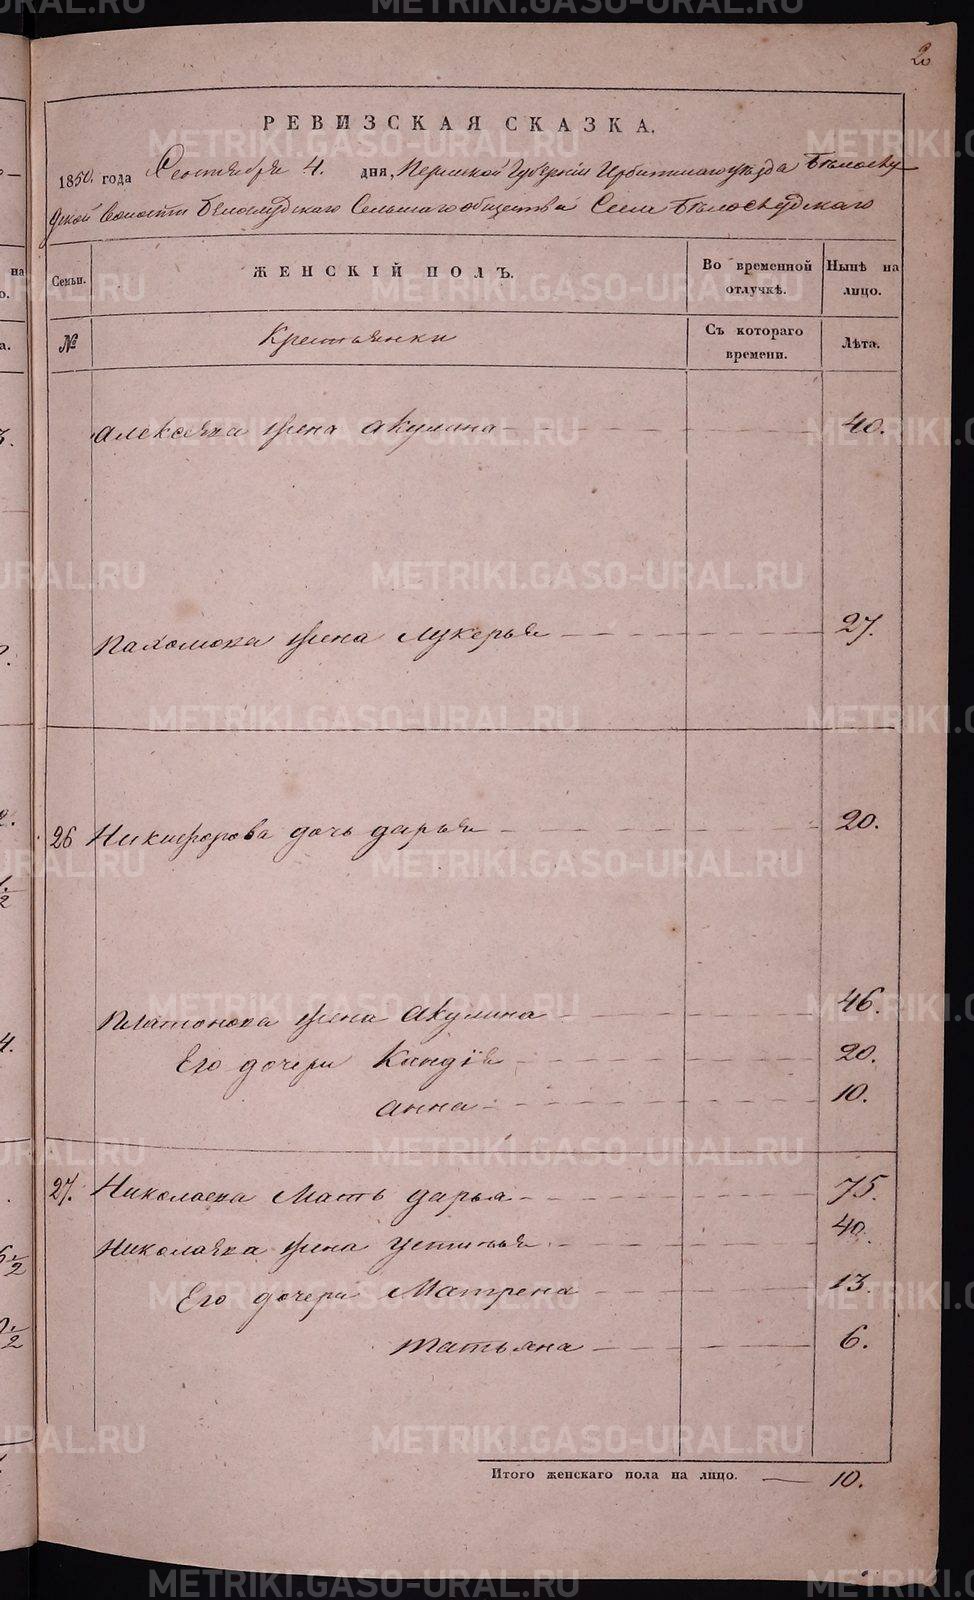 2
РЕВИЗСКАЯ СКАЗКА.
1850. года Сентября 4. дня, Пермской Губерніи Ирбитскаго уѣзда Бѣлослу
дской Волости Белослудскаго Сельскаго общества Села Бѣлослудскаго
Семьи. ЖЕНСКІЙ ПОЛЪ. Во временной отлучкѣ. Нынѣ на лицо.
№ Крестьянки Съ котораго времени. Лѣта.
Алексѣева жена Акулина 40.
Пахомова жена Лукерья 27.
26 Никифорова дочь дарья 20.
Платонова жена Акулина 46.
Его дочери Клавдія 20.
Анна 10.
27. Николаева Мать дарья 75.
Николаева жена Устинья 40.
Его дочери Матрена 13.
Татьяна 6.
Итого женскаго пола на лицо. 10.
METRIKI.GASO-URAL.RU